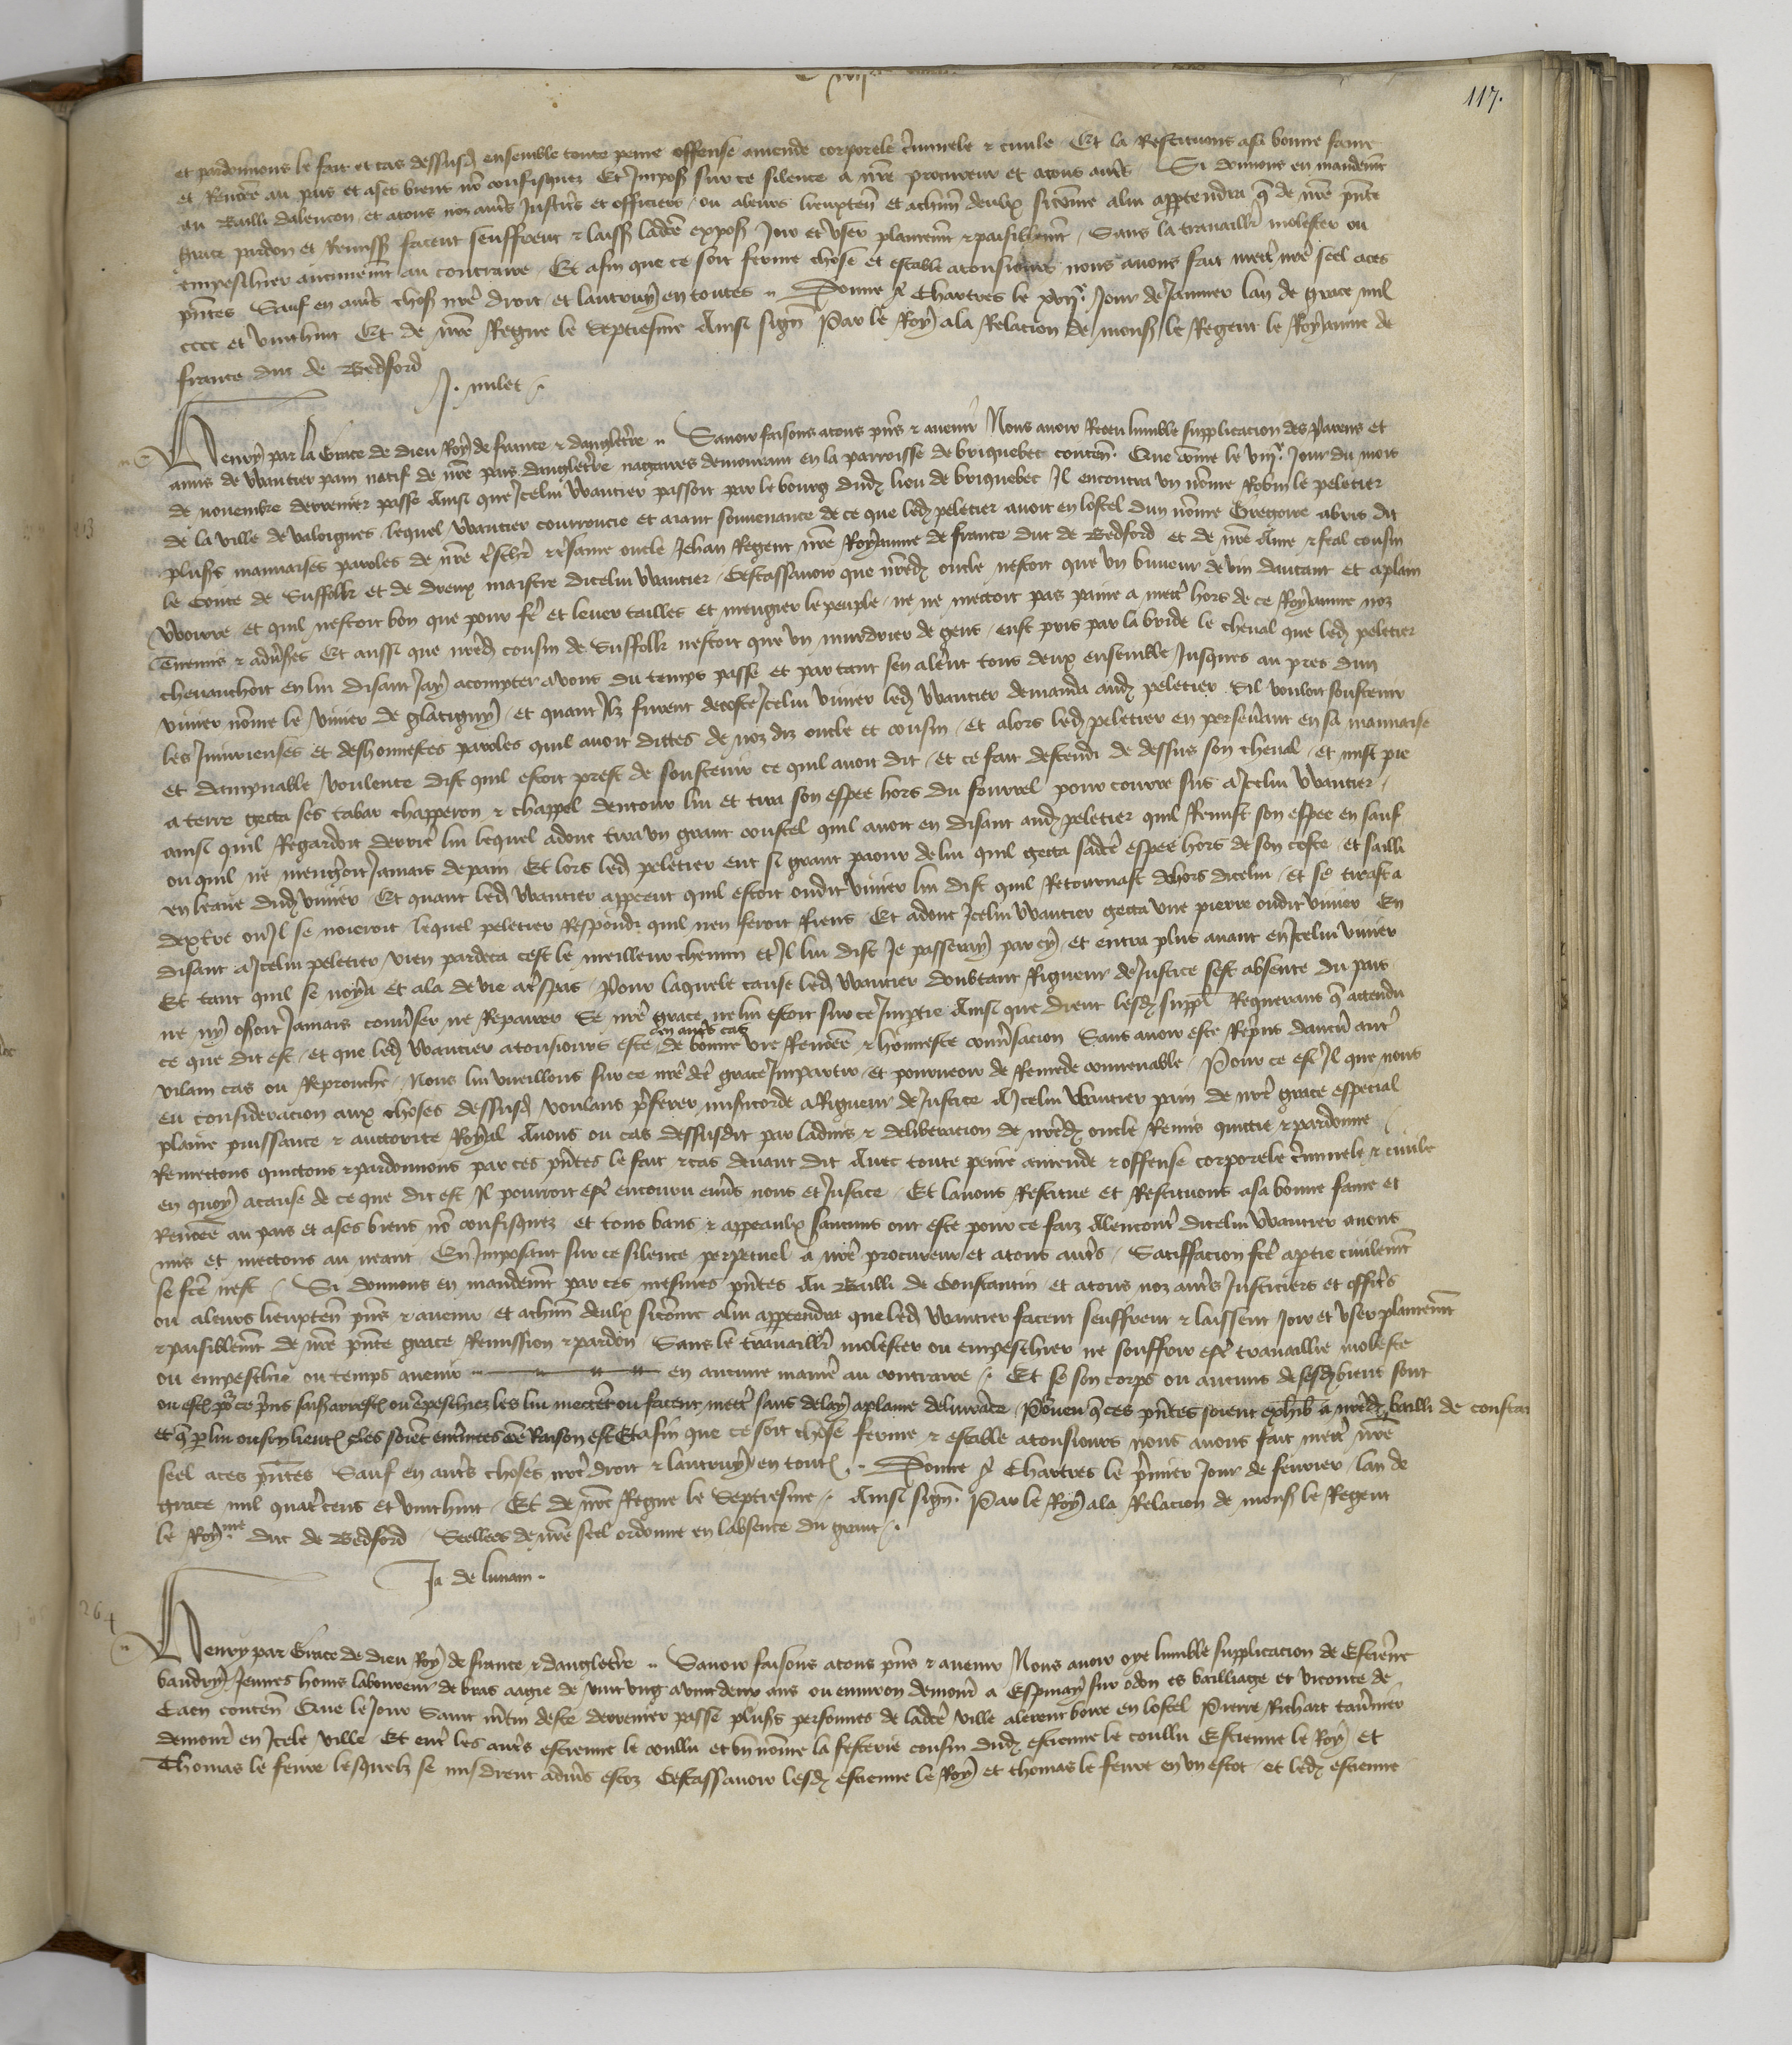 117.
et pardonnons le fait et cas dessusd ensemble toute peine offense amende corporele criminele & civile Et la Restituons asa bonne fame
et Renōee au pais et ases biens nō confisquez Et Imposs sur ce silence a nr̄e procureur et atous autr̄s Si donnons en mandemt̄
au Bailli dalencon et atous noz autr̄s Justicr̄s et officiers ou aleurs lieuxten̄ et achūn deulx sicōme alui appartendra q̄ de nr̄e pn̄te
grace pardon et Remiss facent seuffrent & laiss ladc̄e expos Joir et user plainemt̄ & paisiblemt̄ Sans la travaillr̄ molester ou
empeschier aucunemt̄ au contraire Et afin que ce soit ferme chose et estable atousjours nous avons fait mettr̄ nr̄e seel aces
pn̄tes Sauf en autr̄s choss nr̄e droit et lautruy en toutes Donne a Chartres le xvije Jour de Janvier lan de grace mil
cccc et vinthuit Et de nr̄e Regne le Septiesme Ainsi sign̄ Par le Roy ala Relacion de mons le Regent le Royaume de
france duc de Bedford
J. milet
Henry par la Grace de dieu Roy de france & dangletr̄re Savoir faisons atous pn̄s & avenir Nous avoir Receu lumble supplicacion des parens et
amis de Wautier pain natif de nr̄e pais dangletr̄re nagaires demourant en la parroisse de briquebec conten̄ Que cōme le viije Jour du mois
de novembre derrenier passe Ainsi que Icelui Wautier passoit par le bourg dud lieu de briquebec Il encontra un nōme Robin le peletier
de la ville de valoignes lequel Wautier courroucie et aiant souvenance de ce que led peletier avoit en lostel dun nōme Gregoire abris dit
plusrs mauvaises paroles de nr̄e tr̄schr̄ & tr̄same oncle Jehan Regent nr̄e Royaume de france duc de Bedford et de nr̄e Ame & feal cousin
le Conte de Suffolk et de dreux maistre dicelui Wautier Cestassavoir que nr̄ed oncle nestoit que un buveur de vin dautant et aplain
voirre et quil nestoit bon que pour fr̄e et lever tailles et mengier le peuple ne ne mettoit pas paine a mettr̄ hors de ce Royaume noz
Ennemis & advs̄es Et aussi que nr̄ed cousin de Suffolk nestoit que un murdrier de gens eust pris par la bride le cheval que led peletier
chevauchoit en lui disant Jay acompter avous du temps passe et par tant sen alerēt tous deux ensemble Jusques au pres dun
vivier nōme le vivier de glatigny et quant Ilz furent decoste Icelui vivier led Wautier demanda aud peletier Sil vouloit soustenir
les Injurieuses et deshonnestes paroles quil avoit dittes de noz diz oncle et cousin et alors led peletier en persevr̄ant en sa mauvaise
et dampnable voulente dist quil estoit prest de soustenir ce quil avoit dit et ce fait descendi de dessus son cheval et mist pie
a terre getta ses tabar chapperon & chappel dentour lui et tira son espee hors du fourrel pour courre sus a Icelui Wautier
ainsi quil Regardoit derrier̄ lui lequel adonc tira un grant coustel quil avoit en disant aud peletier quil Remist son espee en sauf
ou quil ne mengeroit Jamais de pain Et lors led peletier eut si grant paour de lui quil getta sadc̄e espee hors de son coste et sailli
en leaue dud vivier Et quant led Wautier appceut quil estoit oudit vivier lui dist quil Retournast dehors dicelui et se tirast a
dextre ou Il se noieroit lequel peletier Respondi quil nen feroit Riens Et adonc Icelui Wautier getta une pierre oudit vivier En
disant a Icelui peletier vien pardeca cest le meilleur chemin et Il lui dist Je passeray par cy et entra plus avant en Icelui vivier
Et tant quil se noya et ala de vie a tr̄espas Pour laquele cause led Wautier doubtant Rigueur de Justice sest absente du pais
ne ny osoit Jamais conv̄ser ne Repairer Se nr̄e grace ne lui estoit sur ce Imptie Ainsi que dient lesd suppl̄ Requerans q̄ attendu
ce que dit est et que led Wautier atousjours este en autr̄s cas de bonne vie Renōee & honneste conv̄sacion Sans avoir este Repris daucū autr̄
vilain cas ou Reprouche Nous lui vueillons sur ce nr̄e dc̄e grace Impartir et pourveoir de Remede convenable Pour ce est Il que nous
eu consideracion aux choses dessusd voulans pr̄ferer misericorde a Rigueur de Justice A Icelui Wautier pain de nr̄e grace especial
plaine puissance & auctorite Royal Avons ou cas dessusdit par ladvis & deliberacion de nr̄ed oncle Remis quittie & pardonne
Remettons quittons & pardonnons par ces pn̄tes le fait & cas devant dit Avec toute peine amende & offense corporele criminele & civile
en quoy acause de ce que dit est Il pourroit estr̄ encouru envr̄s nous et Justice Et lavons Restitue et Restituons asa bonne fame et
Renōee au pais et ases biens nō confisquez et tous bans & appeaulx saucuns ont este pour ce faiz Alencontr̄ dicelui Wautier avons
mis et mettons au neant En Imposant sur ce silence perpetuel a nr̄e procureur et atous autr̄s Satiffacion fcē aptie civilemt̄
se fcē nest Si donnons en mandemt̄ par ces mesmes pn̄tes Au Bailli de Constantin et atous noz autr̄s Justiciers et officr̄s
ou aleurs lieuxten̄ pn̄s & avenir et achūn deulx sicōme alui appartendra que led Wautier facent seuffrent & laissent Joir et user plainemt̄
& paisiblemt̄ de nr̄e pn̄te grace Remission & pardon Sans le travaillr̄ molester ou empeschier ne souffrir estr̄ travaillie moleste
ou empeschie ou temps avenir en aucune manier̄ au contraire Et se son corps ou aucuns de sesd biens sont
ou estoiēt pour ce pr̄ins saisis arrestez ou ēpeschiez les lui mettent ou facent mettr̄ sans delay aplaine delivrāce Pourveu q̄ ces pn̄tes soient exhib̄ a nr̄ed bailli de constan
et q̄ p lui ou son lieuten̄ elles soiēt entr̄inees cōe Raison est Et afin que ce soit chose ferme & estable atousjours nous avons fait mettr̄ nr̄e
seel aces pn̄tes Sauf en autr̄s choses nr̄e droit & lautruy en toutes Donne a Chartres le pr̄mier Jour de fevrier lan de
grace mil quatr̄cens et vinthuit Et de nr̄e Regne le Septiesme Ainsi sign̄ Par le Roy ala Relacion de mons le Regent
le Royme duc de Bedford Seellees de nr̄e seel ordonne en labsence du grant
Ja de lunain
264
Henry par Grace de dieu Roy de france & dangletr̄re Savoir faisons atous pn̄s & avenir Nous avoir oye lumble supplicacion de Estienne
baudry Jeunes homs laboureur de bras aagie de vint ung a vint deux ans ou environ demour̄ a Espinay sur odon es bailliage et viconte de
Caen conten̄ Que le Jour Saint mr̄tin deste derrenier passe plusrs personnes de ladc̄e ville alerent boire en lostel Pierre Richart tavr̄nier
demour̄ en Icele ville Et entr̄ les autr̄s estienne le coullu et un nōme la festerie cousin dud estienne le coullu Estienne le Roy et
Thomas le fevre lesquelz se misdrent adivr̄s escoz Cestassavoir lesd estienne le Roy et thomas le fevre en un escot et led estienne